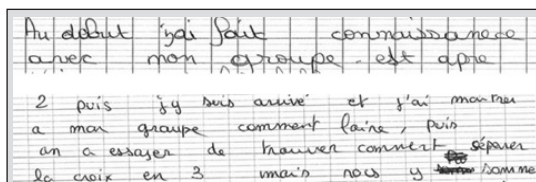 Au debut j'ai fait connaissance
avec mon groupe. est apre
2 puis j'y suis arrivé et j'ai montrer
a mon groupe comment faire, puis
on a essayer de trouver comment séparer
la croix en 3 mais nous y somme